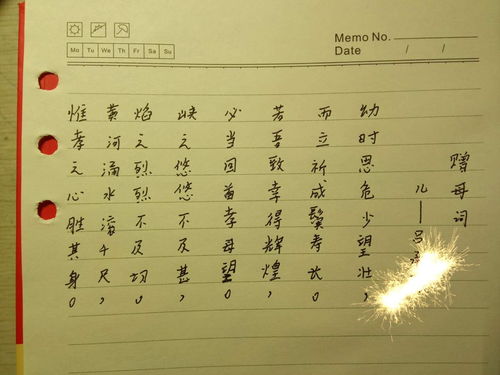 Memo No.
Date / /
Mo Tu We Th Fr Sa Su
赠母词
儿——吕
幼时思危少望壮,
而立祈成鬓寿长。
若吾致幸得辉煌,
必当回首孝母望。
峡之悠悠不及甚,
焰之烈烈不及切。
黄河涌水滚千尺,
惟孝之心胜其身。